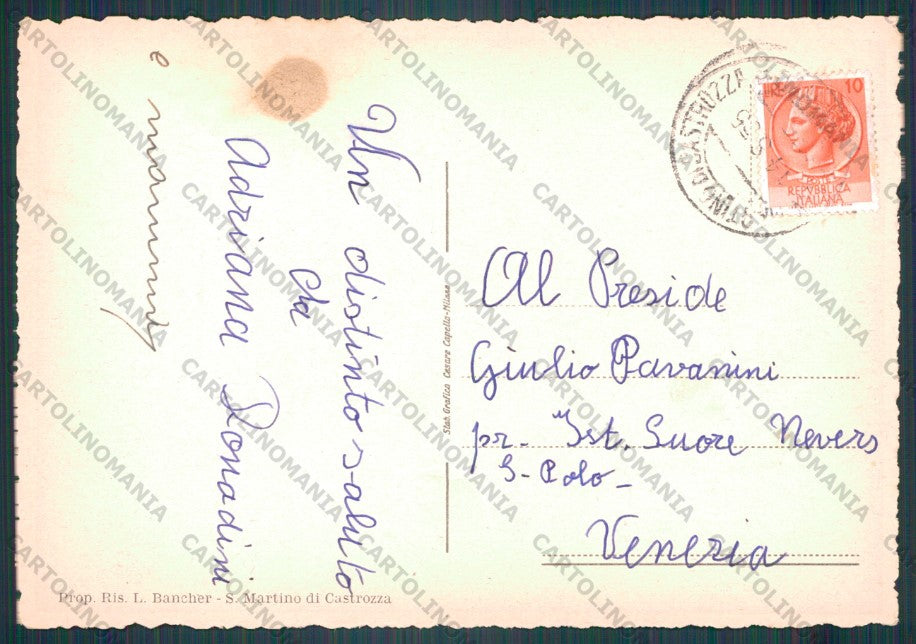 Un distinto saluto
da
Adriana Donadini
e mammà
Al Preside
Giulio Pavanini
pr- Ist. Suore Nevers
S- Polo-
Venezia
10
POSTE
REPVBBLICA
ITALIANA
DI CASTROZZA
Stab. Grafico Cesare Capello-Milano
Prop. Ris. L. Bancher - S. Martino di Castrozza
CARTOLINOMANIA